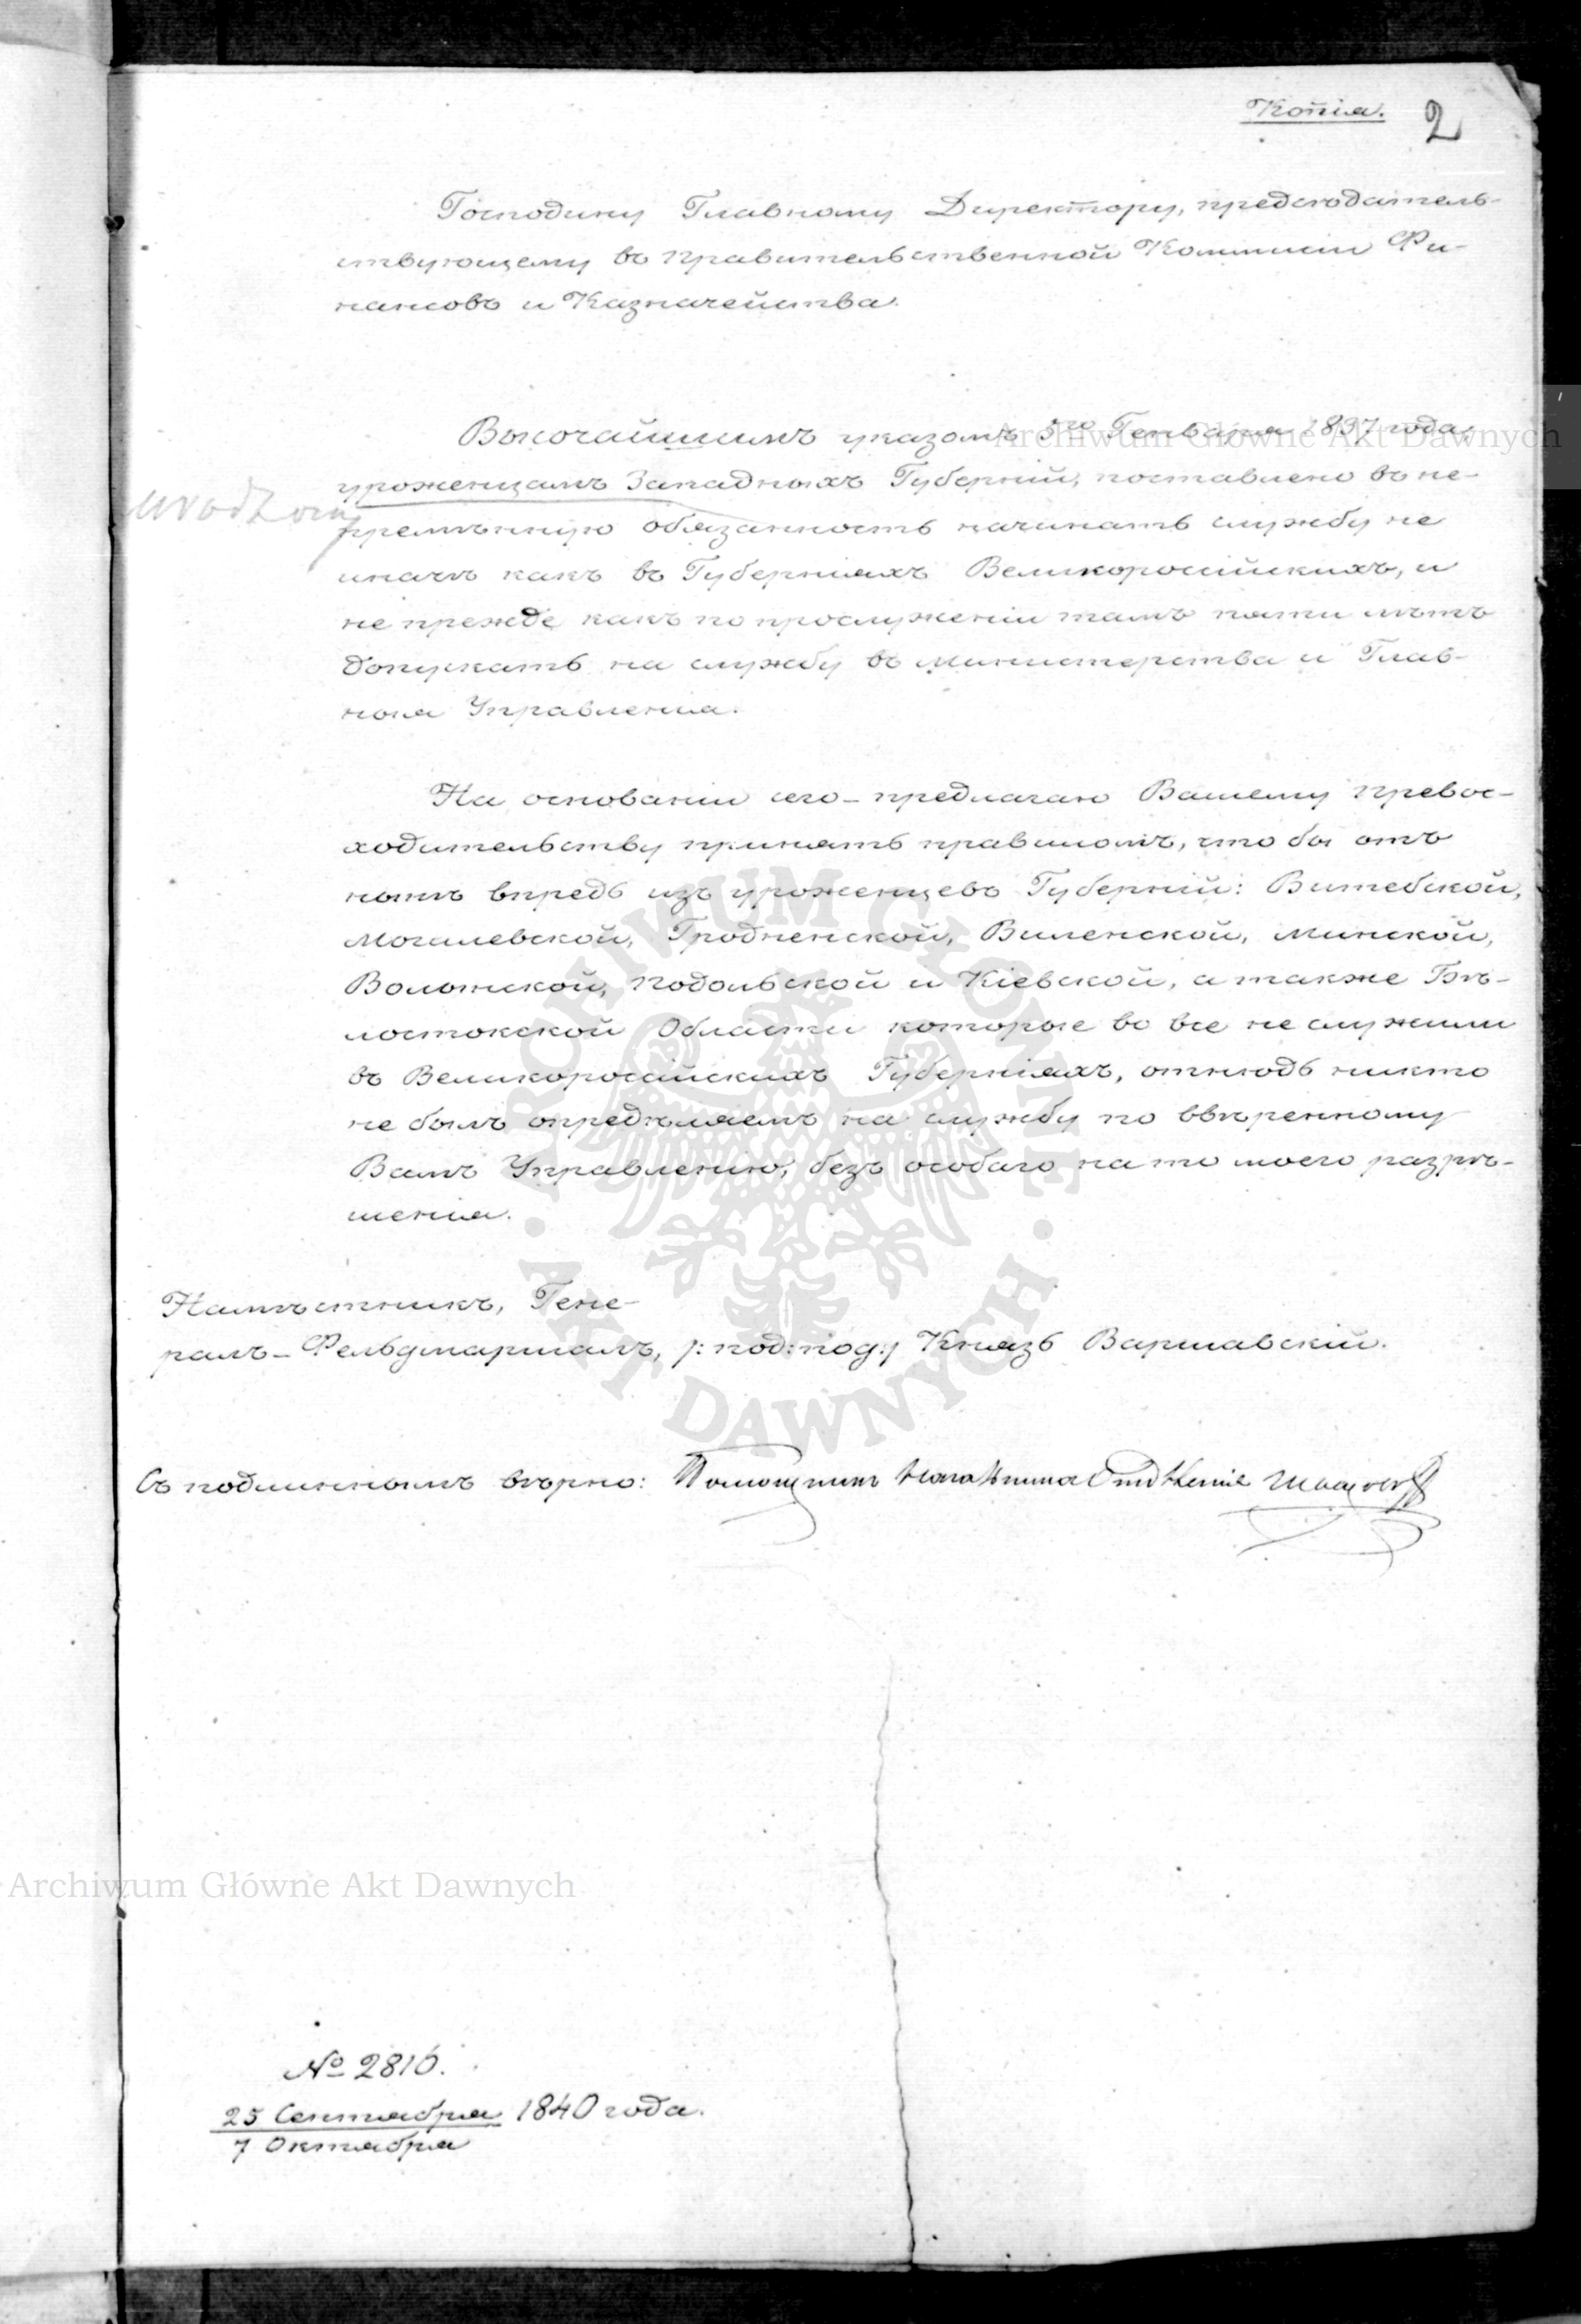 Копія.
2
Господину Главному Директору, предсѣдатель-
ствующему въ Правительственной Коммисіи Фи-
нансовъ и Казначейства.
Высочайшимъ указомъ 5го Генваря 1837 года,
уроженцамъ Западныхъ Губерній, поставлено въ не-
urodzony
премѣнную обязанность начинать службу не
иначе какъ въ Губерніяхъ Великороссійскихъ, и
не прежде какъ по прослуженіи тамъ пяти лѣтъ
допускать на службу въ Министерства и Глав-
ныя Управленія.
На основаніи сего - предлагаю Вашему Превос-
ходительству принять правиломъ, что бы отъ
нынѣ впредь изъ уроженцевъ Губерній: Витебской,
Могилевской, Гродненской, Виленской, Минской,
Волынской, Подольской и Кіевской, а также Бѣ-
лостокской Области которые во все не служили
въ Великороссійскихъ Губерніяхъ, отнюдь никто
не былъ опредѣляемъ на службу по ввѣренному
Вамъ Управленію, безъ особаго на то моего разрѣ-
шенія.
Намѣстникъ, Гене-
ралъ-Фельдмаршалъ, /:под:под:/ Князь Варшавскій.
Съ подлиннымъ вѣрно: Помощникъ Начальника Отдѣленія
№ 2816.
25 Сентября 1840 года.
7 Октября
Archiwum Główne Akt Dawnych
Archiwum Główne Akt Dawnych
ARCHIWUM GŁÓWNE
AKT DAWNYCH